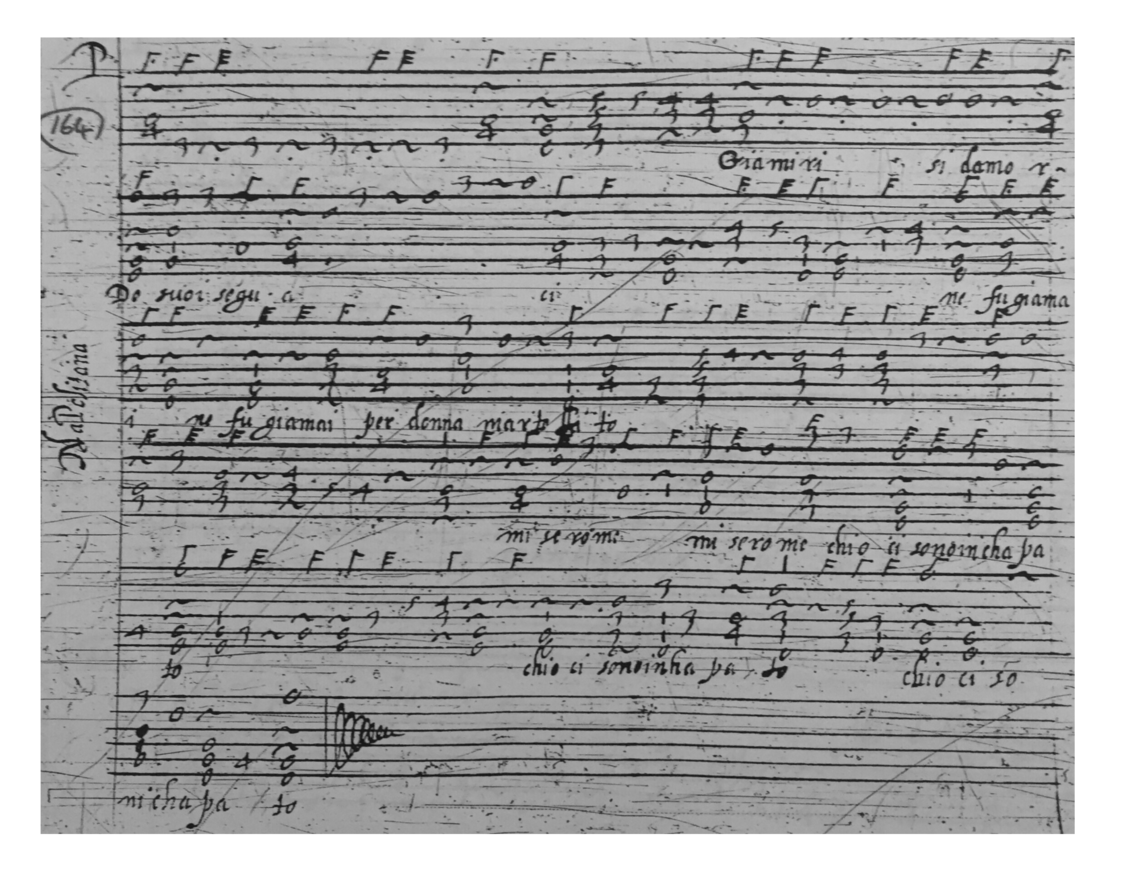 164
Giamiri si damo r
De suoi segu a ci ne fugiama
i ne fu giamai per donna marto to
mi se rome mi serome chio ci sonoincha pa
to chio ci sonoinha pa to chio ci sõ
nicha pa to